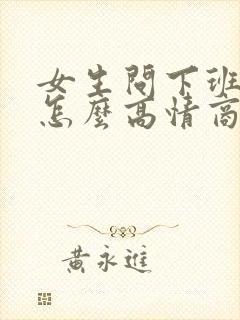 女生問下班
怎麼高情商
黃永進